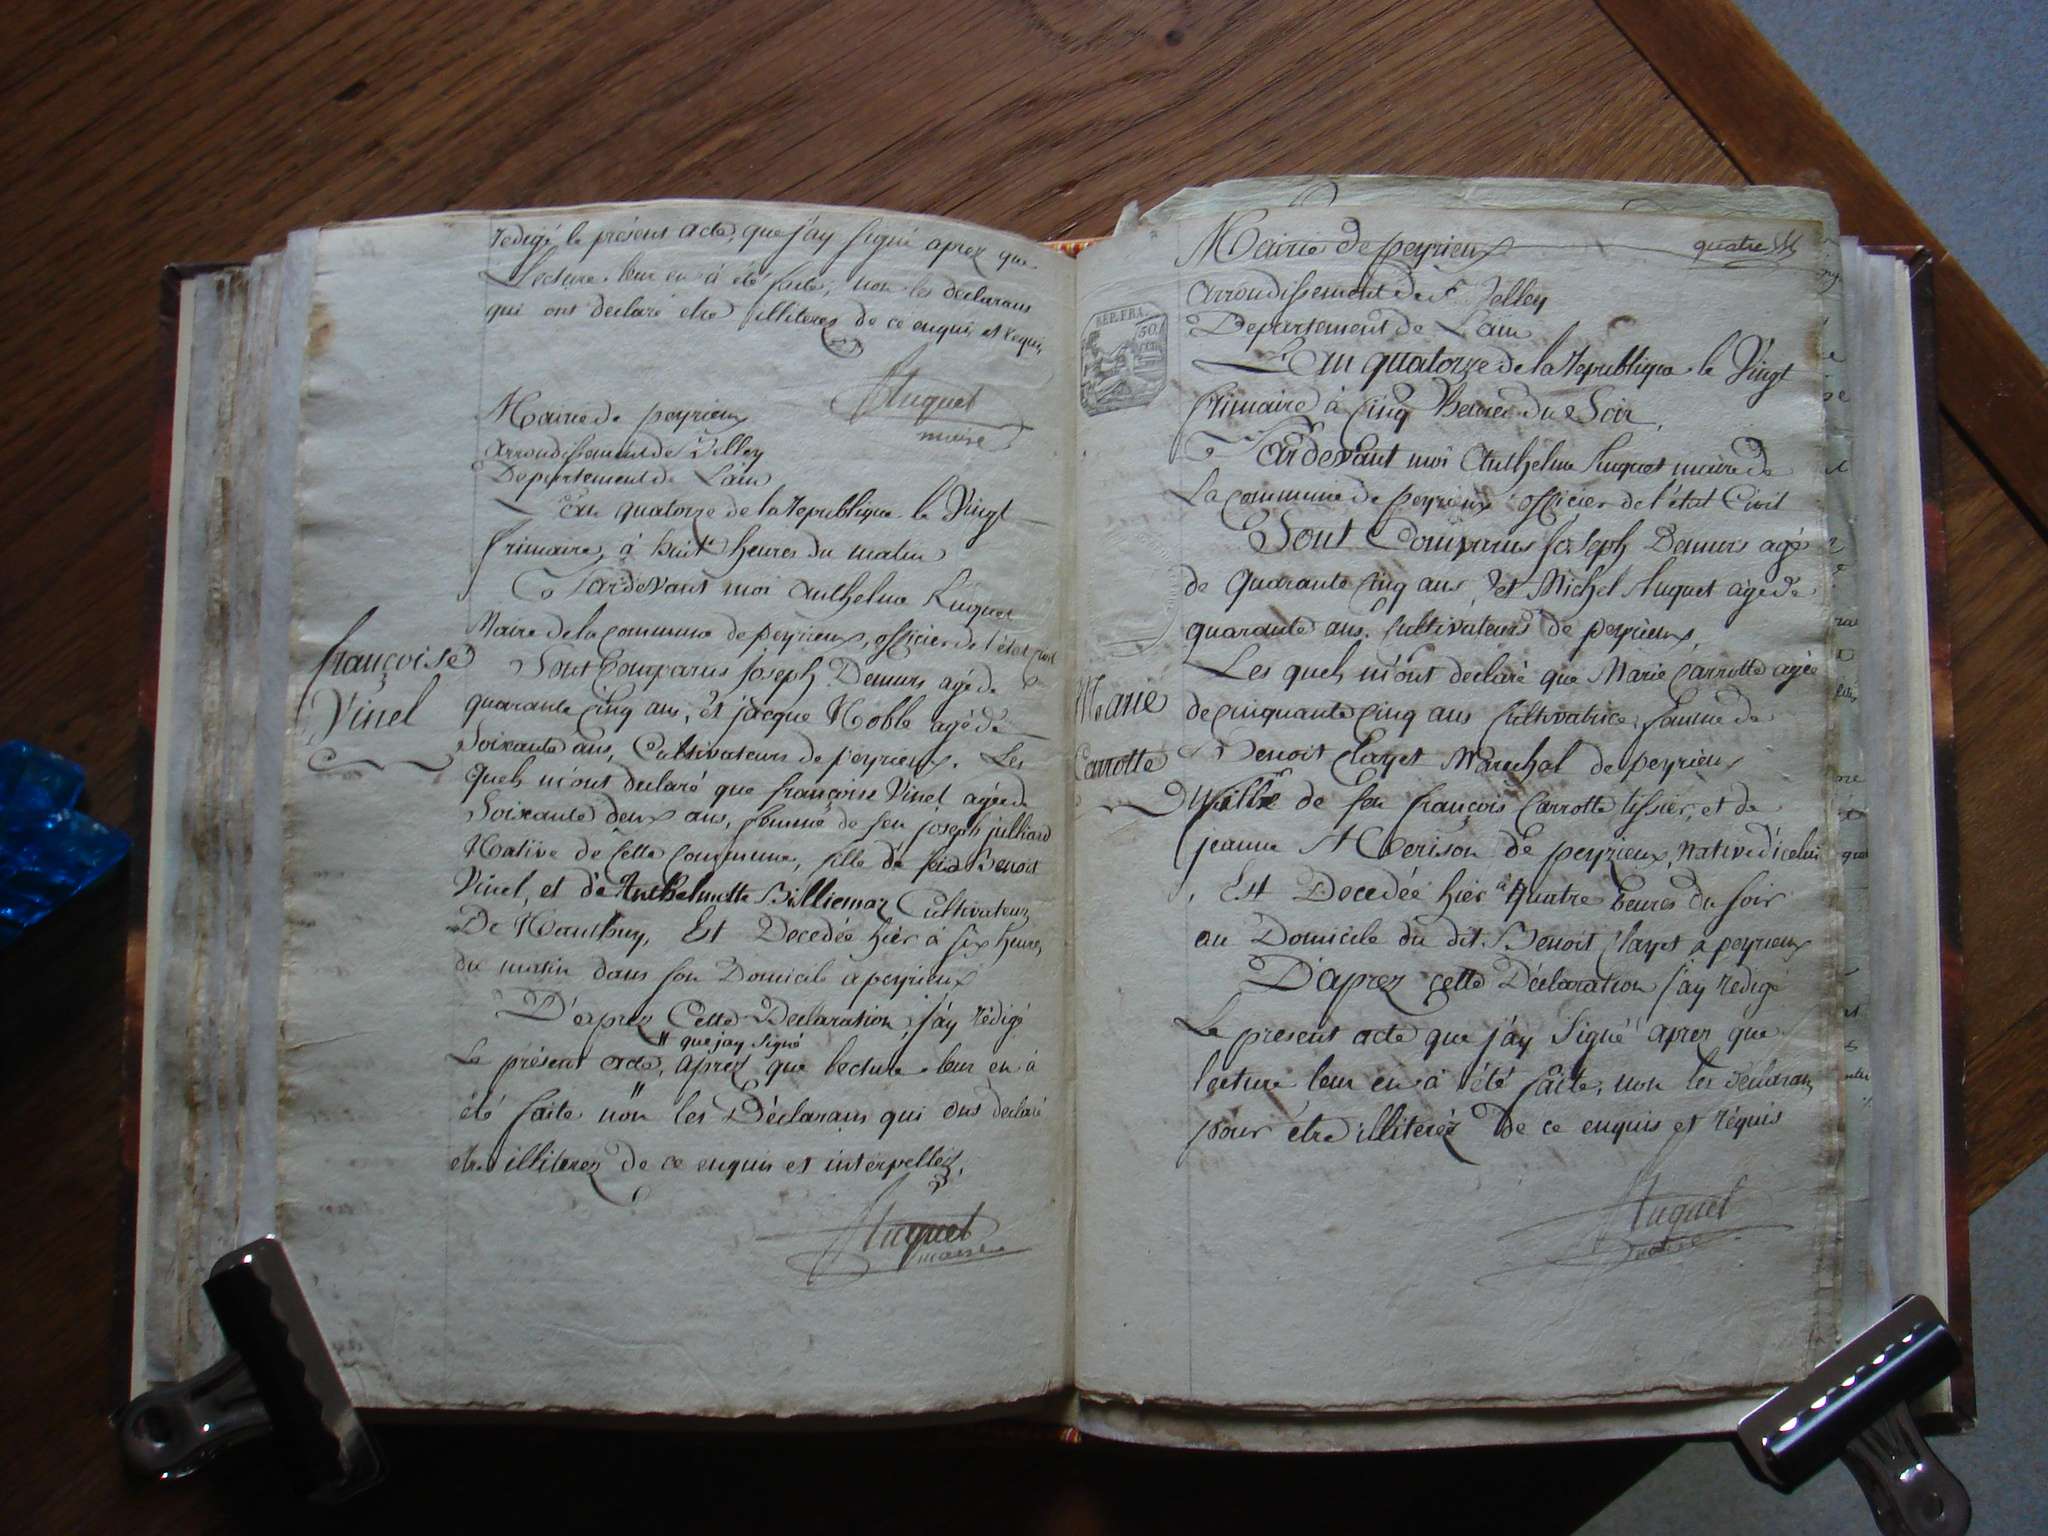 redigé le présent acte, que j'ay signé aprez que
Lecture leur en à été faite, non les declarans
qui ont declaré etre illiterez de ce enquis et requis
Huguet
maire
Mairie de peyrieux
arrondissement de Belley
Departement de L'ain
L'an quatorze de la republique le Vingt
frimaire, à huit heures du matin
Pardevant moi Anthelme Huguet
Maire de la commune de peyrieux, officier de l'état civil
françoise
Vinel
Sont Comparus joseph Demurs agé de
quarante Cinq ans, et jacque Noble agé de
Soixante ans, Cultivateurs de peyrieux. Les
quels m'ont declaré que françoise Vinel agée de
Soixante deux ans, femme de feu joseph julliard
Native de Cette Commune, fille de feu Benoit
Vinel, et de Anthelmette Billiemaz Cultivateurs
De Nanthuy, Est Decedée hier à six heures
du matin dans son Domicile a peyrieux
D'aprez Cette Declaration, j'ay rédigé
" que jay signé
Le présent acte, aprez que lecture leur en à
été faite non les Déclarans qui ont declaré
etre illiterez de ce enquis et interpellez.
Huguet
maire
quatre
Mairie de peyrieux
arrondissement de Belley
Departement de L'ain
REP. FRA.
50
L'an quatorze de la republique le Vingt
frimaire à Cinq heures du Soir,
Pardevant moi Anthelme Huguet maire de
La commune de peyrieux officier de l'état Civil
Sont Comparus joseph Demurs agé
de quarante Cinq ans, et Michel Huguet agé de
quarante ans, Cultivateurs de peyrieux,
Les quels m'ont declaré que Marie Carrotte agée
Marie
Carrotte
de cinquante Cinq ans Cultivatrice, femme de
Benoit Clayet Marechal de peyrieux
fille de feu françois Carrotte tissier, et de
jeanne Merison de peyrieux, Native d'icelui
, Est Decedée hier à quatre heures du soir
au Domicile du dit Benoit Clayet a peyrieux
D'aprez cette Déclaration j'ay redigé
Le present acte que j'ay signé aprez que
lecture leur en à été faite, non les déclarans
pour etre illiterez de ce enquis et réquis
Huguet
maire